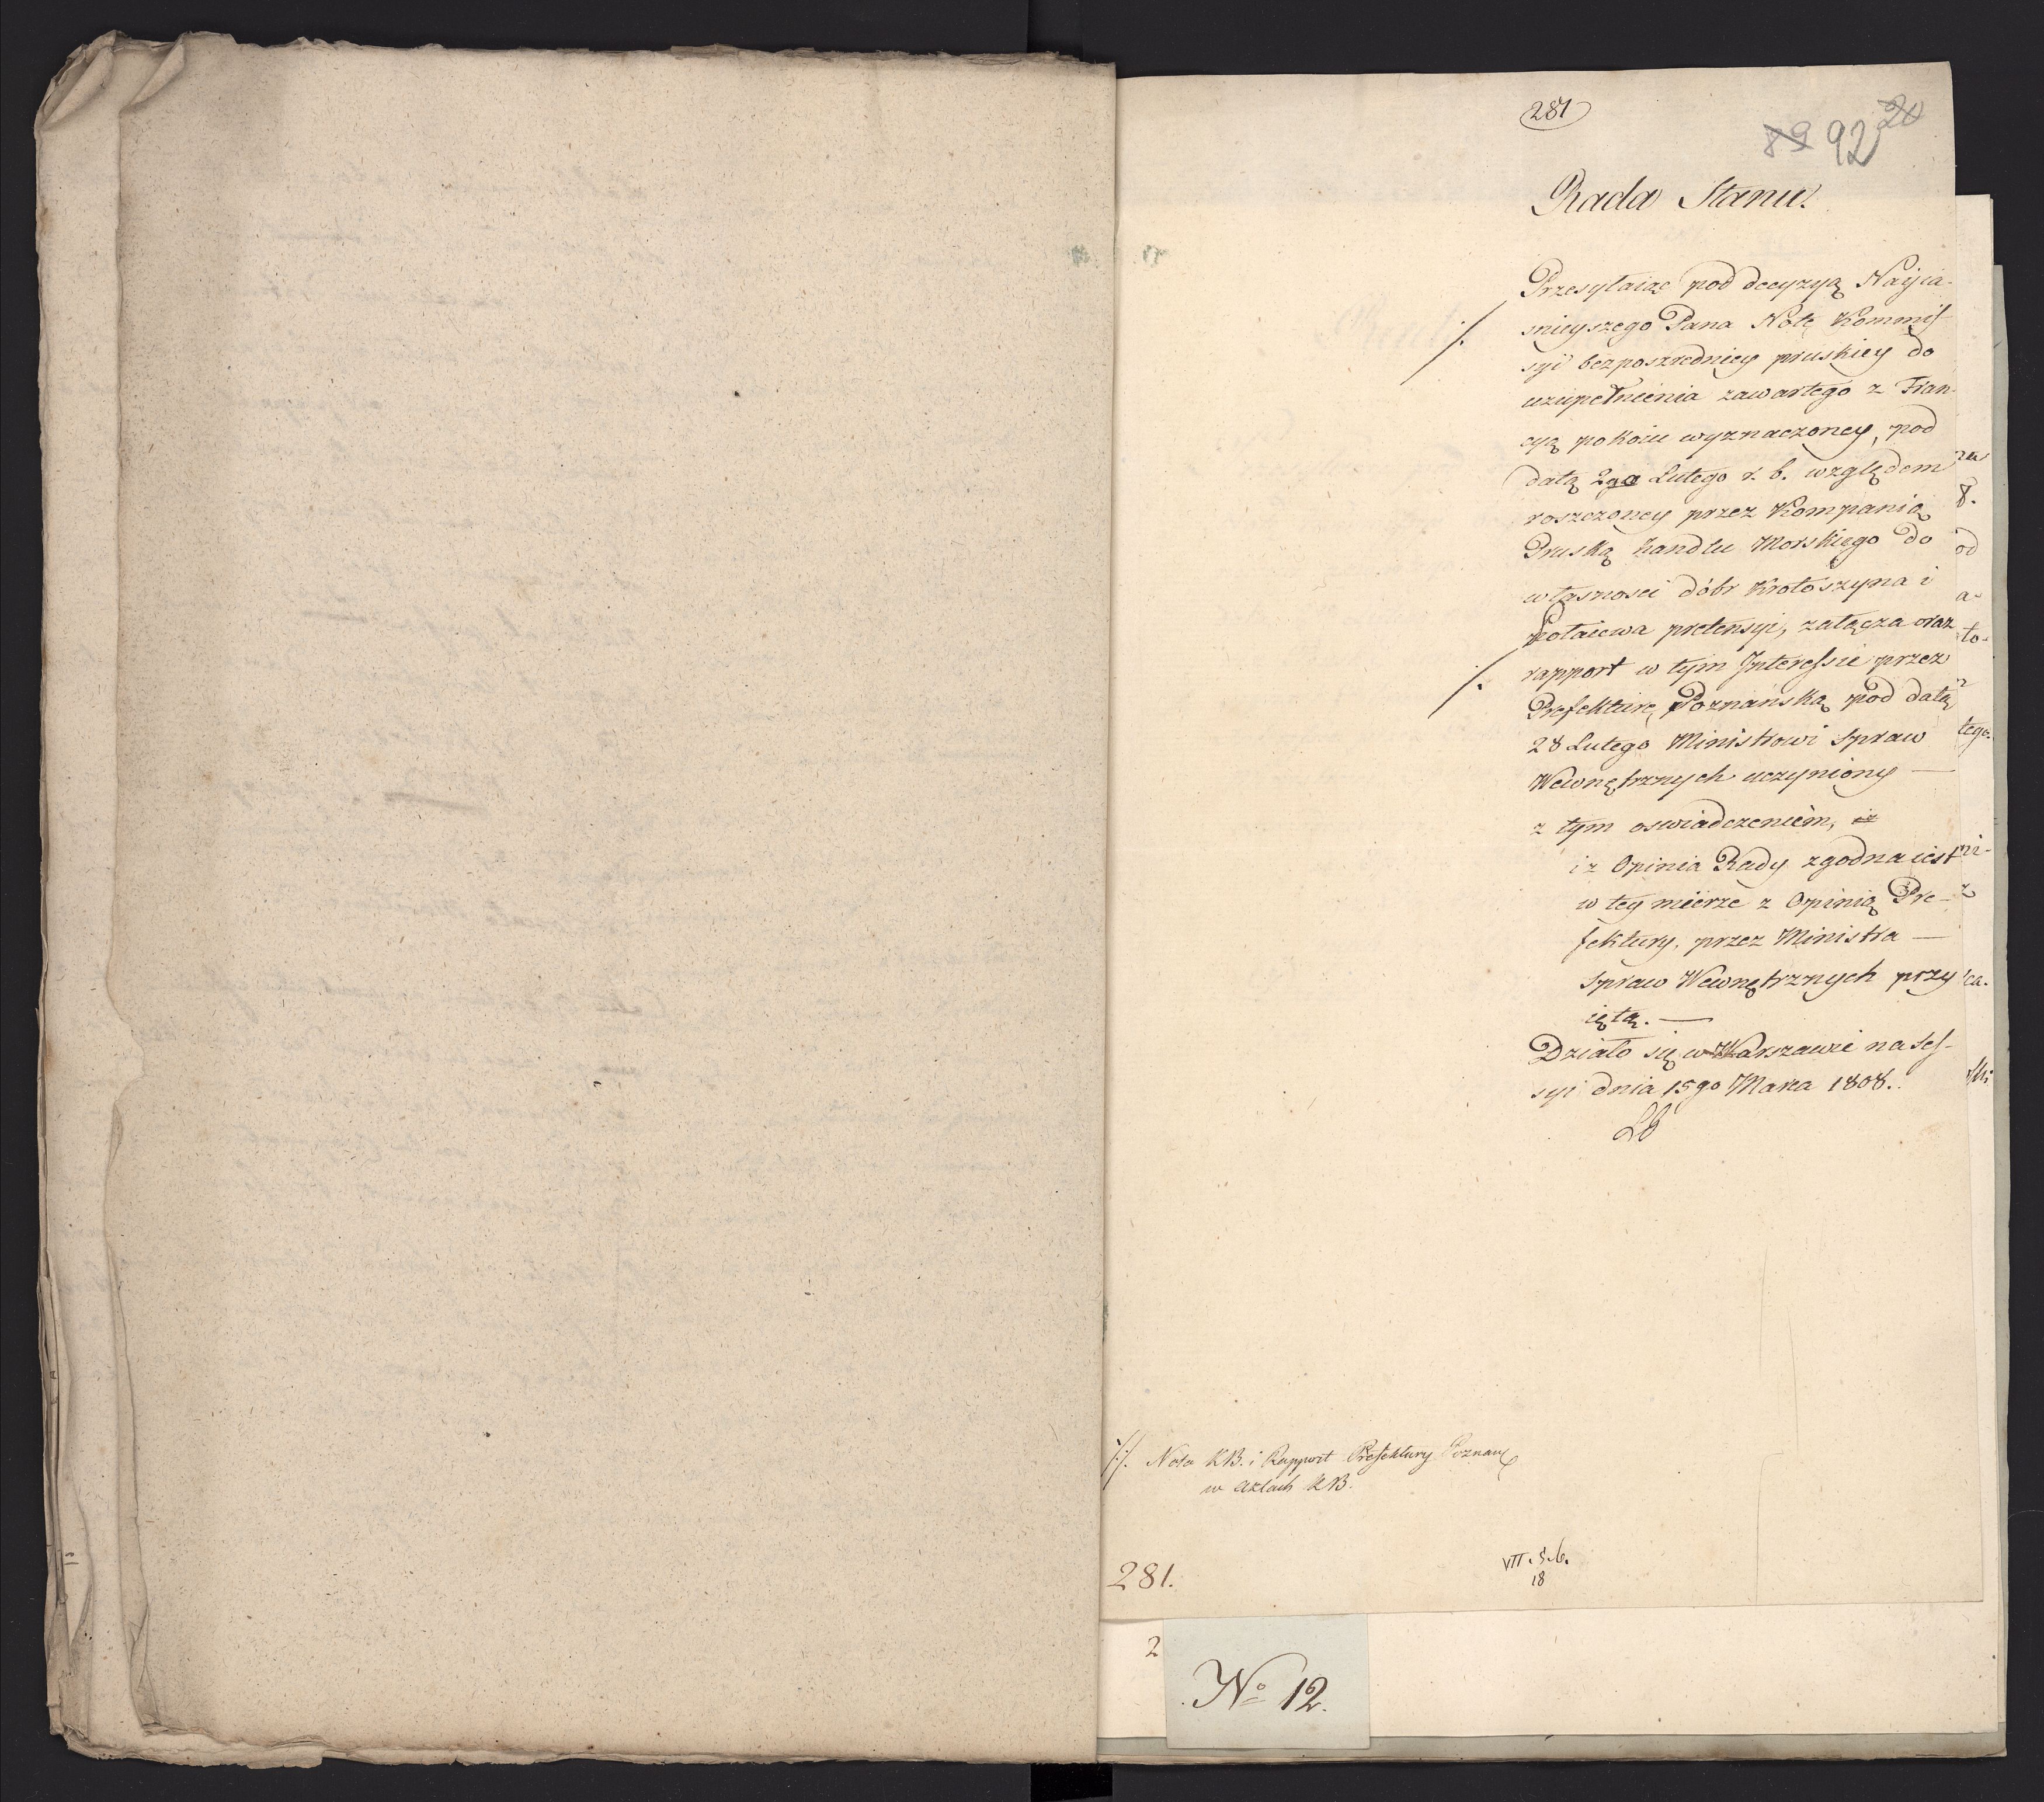 281
89 92 20
Rada Stanu.
Przesyłaiąc pod decyzyą Nayia-
śnieyszego Pana Notę Kommis-
syi bezposzredniey pruskiey do
uzupełnienia zawartego z Fran-
cyą pokoiu wyznaczoney, pod
datą 2go Lutego r. b. względem
roszczoney przez Kompanią
Pruską handlu Morskiego do
własnosci dóbr Krotoszyna i
Potaiewa pretensyi, załącza oraz
rapport w tym Interessie przez
Prefekturę Poznańską pod datą
28 Lutego Ministrowi Spraw
Wewnętrznych uczyniony —
z tym oswiadczeniem, iż
iż Opinia Rady zgodna iest
w tey mierze z Opinią Pre-
fektury, przez Ministra —
Spraw Wewnętrznych przy
iętą. —
Działo się w Warszawie na Ses-
syi dnia 15go Marca 1808.
LB
·/· ·/·
za
8.
od
a-
to-
tego.
ni-
z
ca.
·/·/. Nota KB. i Rapport Prefektury Poznans
w aktach KB.
281.
VII. 5. 6.
18
2
No 12.